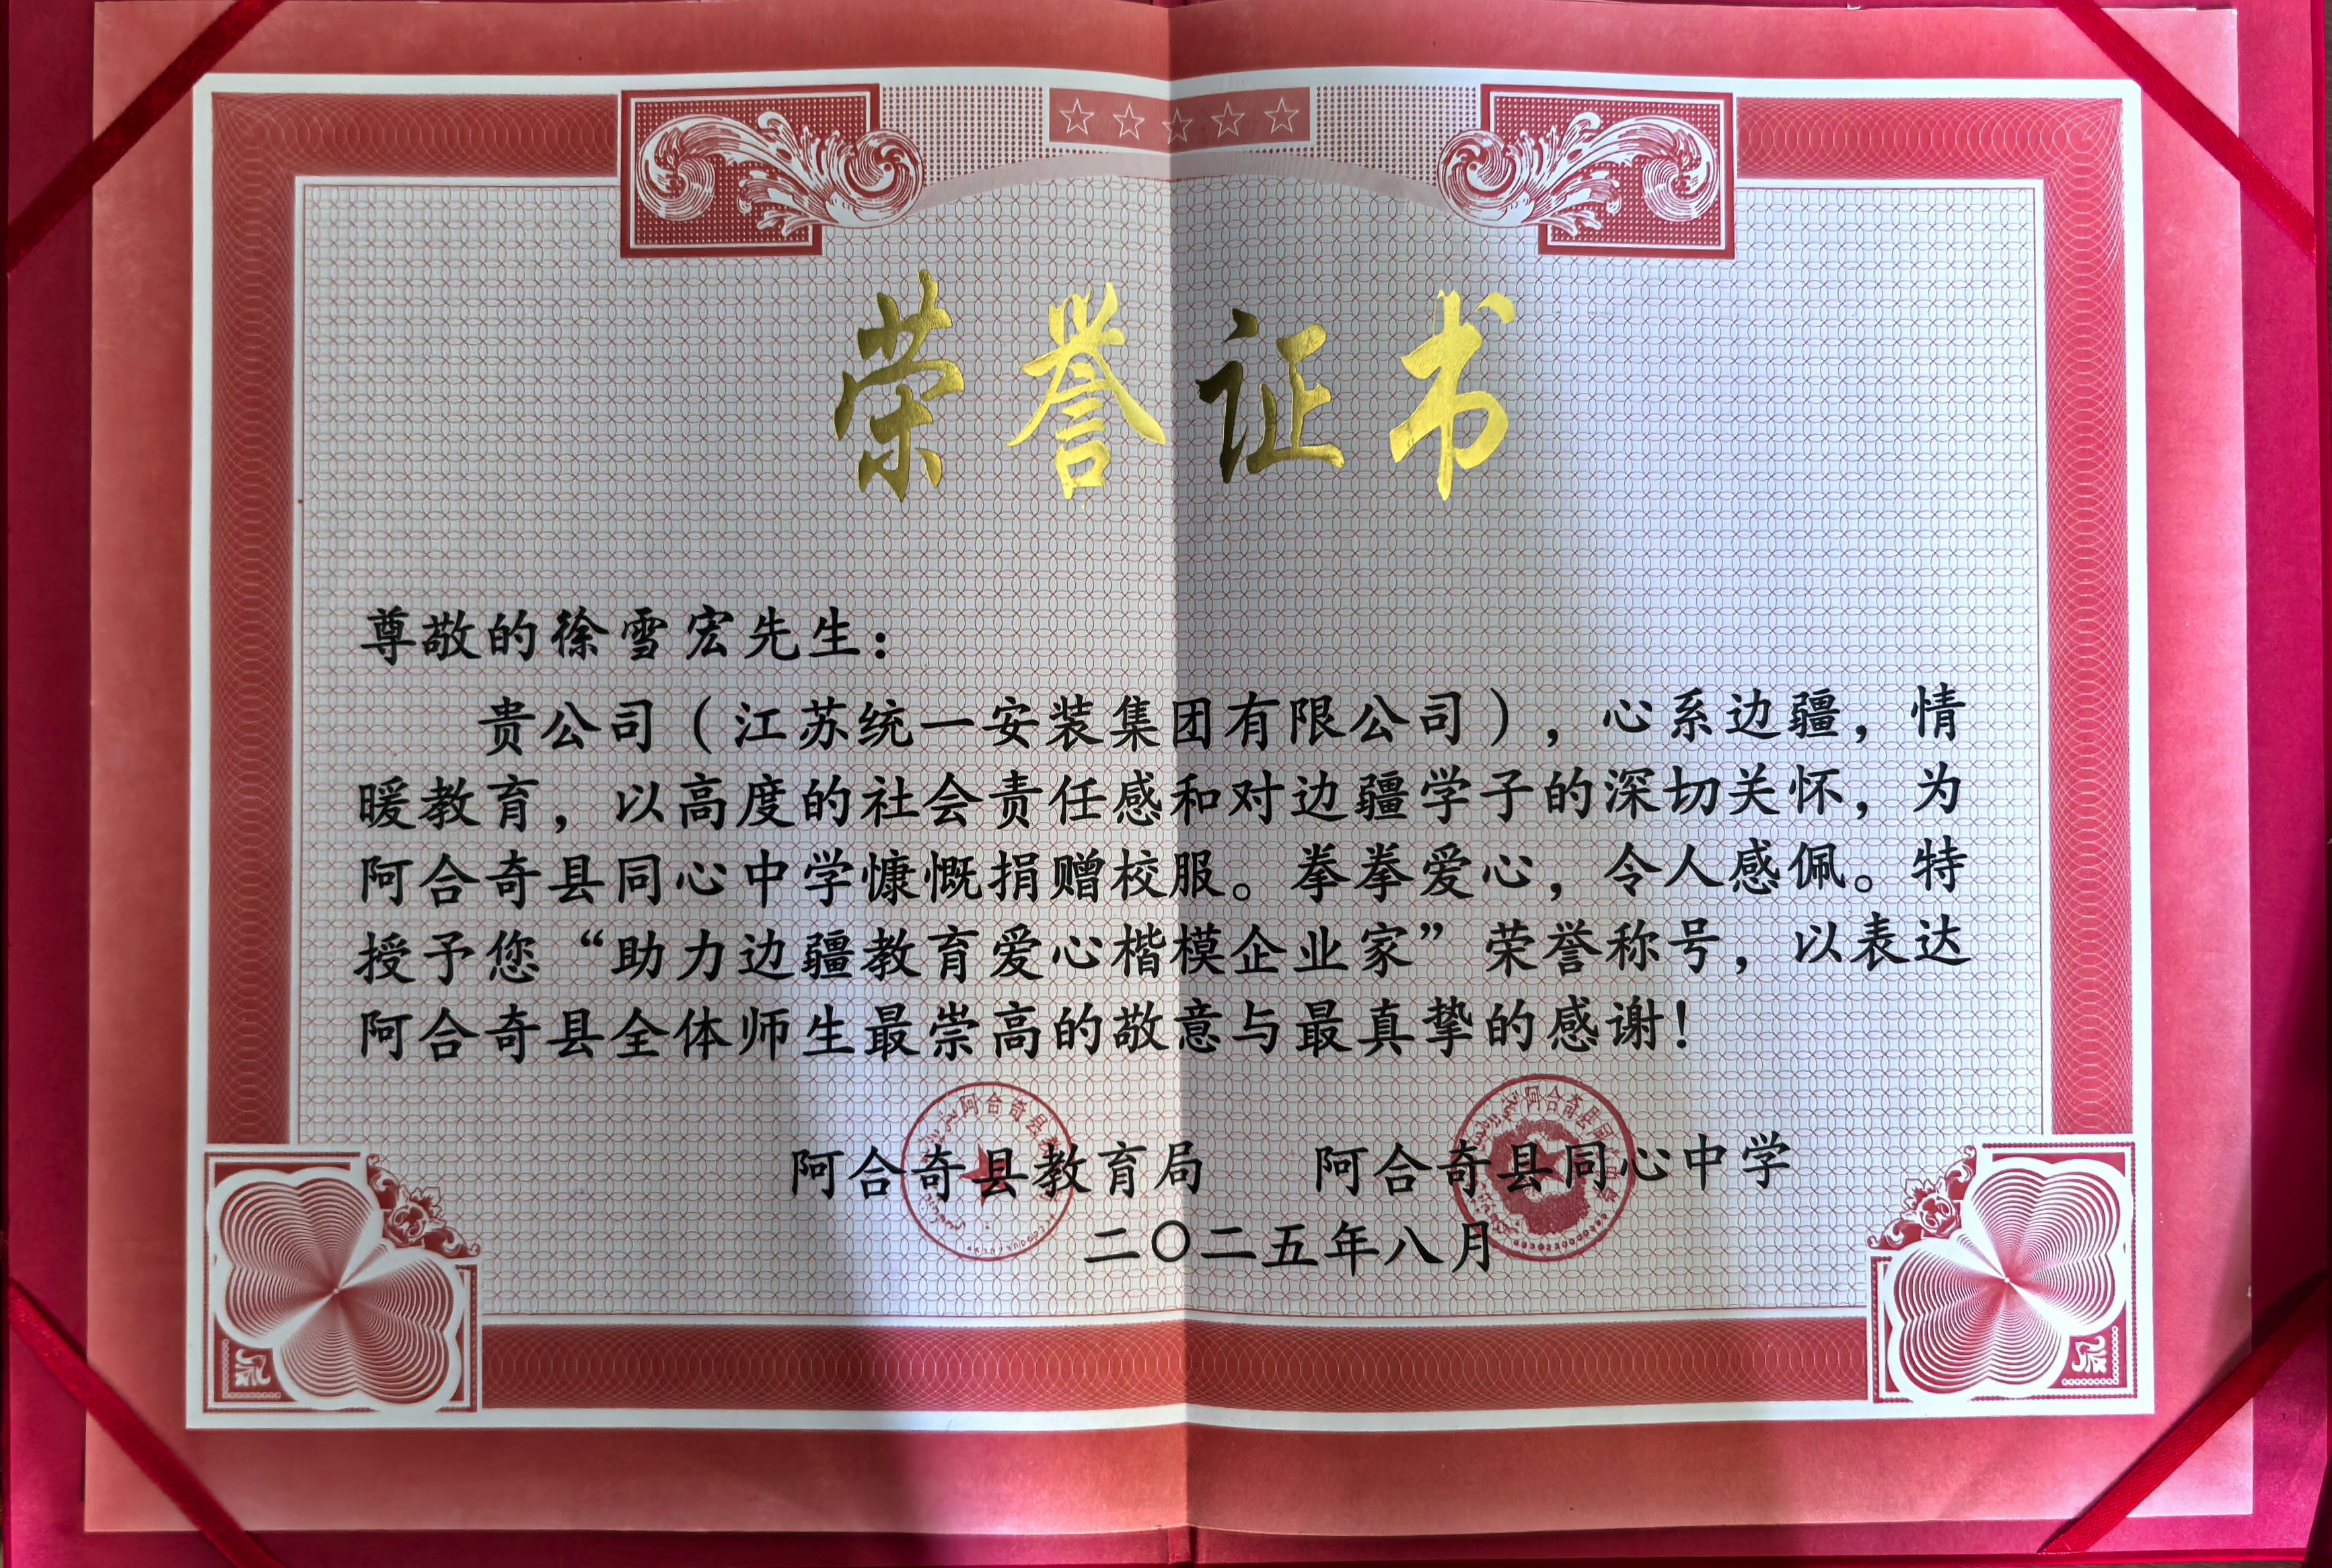 荣誉证书
尊敬的徐雪宏先生：
贵公司（江苏统一安装集团有限公司），心系边疆，情
暖教育，以高度的社会责任感和对边疆学子的深切关怀，为
阿合奇县同心中学慷慨捐赠校服。拳拳爱心，令人感佩。特
授予您“助力边疆教育爱心楷模企业家”荣誉称号，以表达
阿合奇县全体师生最崇高的敬意与最真挚的感谢！
阿合奇县教育局 阿合奇县同心中学
二〇二五年八月
阿合奇县教
阿合奇县同